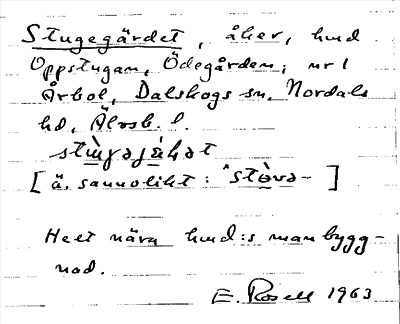 Stugegärdet, åker, hmd
Oppstugan, Ödegården; nr 1
Årbol, Dalskogs sn, Nordals
hd, Älvsb. l.
[ä. sannolikt: *stòva- ]
Helt nära hmd:s manbygg-
nad.
E. Rosell 1963